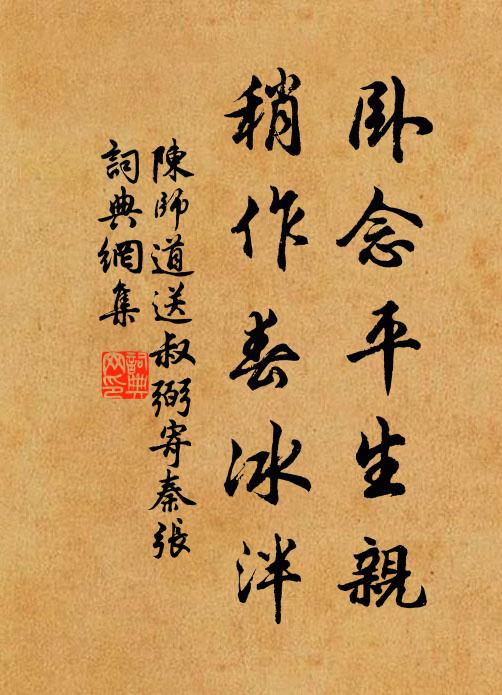 卧念平生親
稍作春冰泮
陳師道送叔弼寄秦張
詞典網集
詞典
网印